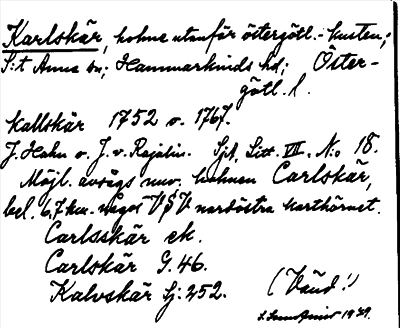 Karlskär, holme utanför östergötl.-kusten;
S:t Anna sn; Hammarkinds hd; Öster-
götl. l.
Kallskär 1752 o. 1767.
J. Hahn o. J. v. Rajalin. Sjk. Litt. VII. N:o 18.
Möjl. avsägs nuv. holmen Carlskär,
bel. 6,7 km. något V § V nordöstra karthörnet.
Carlsskär ek.
Carlskär G. 46.
Kalvskär Sj: 252.
(Vänd!)
1939.